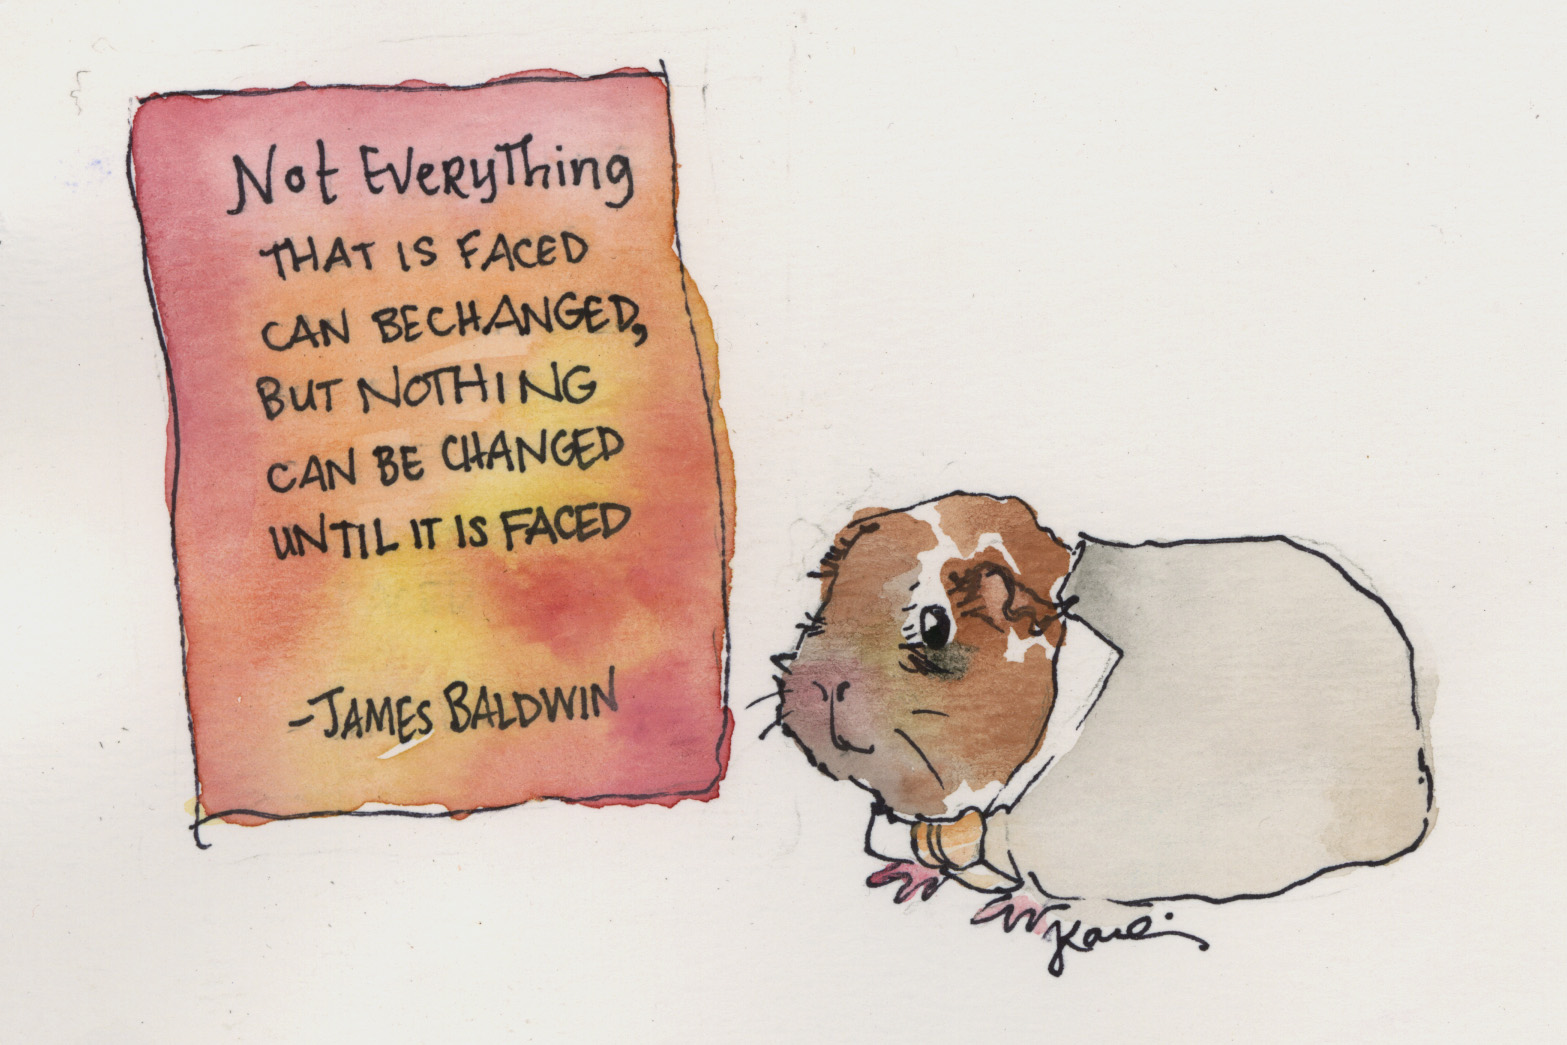 Not Everything
THAT IS FACED
CAN BE CHANGED,
BUT NOTHING
CAN BE CHANGED
UNTIL IT IS FACED
-JAMES BALDWIN